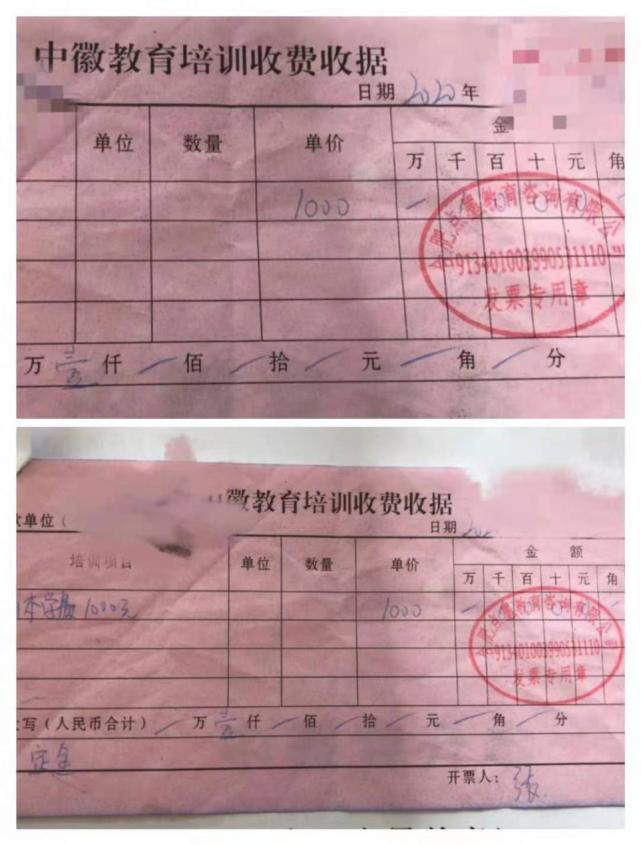 中徽教育培训收费收据
日期 2020 年
单位 数量 单价 金
万 千 百 十 元 角
1000
合肥点量教育咨询有限公司
发票专用章
万 壹 仟 佰 拾 元 角 分
徽教育培训收费收据
单位(
日期
培训项目 单位 数量 单价 金 额
万 千 百 十 元 角
本学费1000元 1000
合肥点量教育咨询有限公司
发票专用章
写(人民币合计) 万 壹 仟 佰 拾 元 角 分
定金
开票人: 张